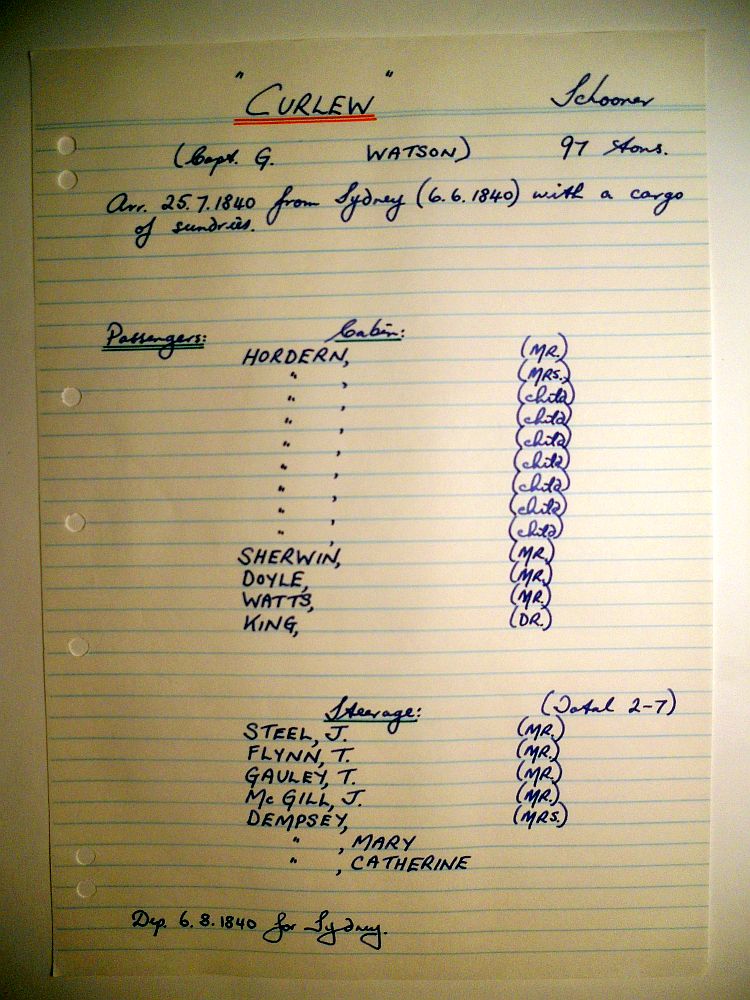 "CURLEW" Schooner
(Capt. G. WATSON) 97 tons.
Arr. 25.7.1840 from Sydney (6.6.1840) with a cargo
of sundries.
Passengers: Cabin:
HORDERN, (MR.)
" , (MRS.)
" , (child)
" , (child)
" , (child)
" , (child)
" , (child)
" , (child)
" , (child)
SHERWIN, (MR.)
DOYLE, (MR.)
WATTS, (MR.)
KING, (DR.)
Steerage: (Total 2-7)
STEEL, J. (MR.)
FLYNN, T. (MR.)
GAULEY, T. (MR.)
Mc GILL, J. (MR.)
DEMPSEY, (MRS.)
" , MARY
" , CATHERINE
Dep. 6.8.1840 for Sydney.